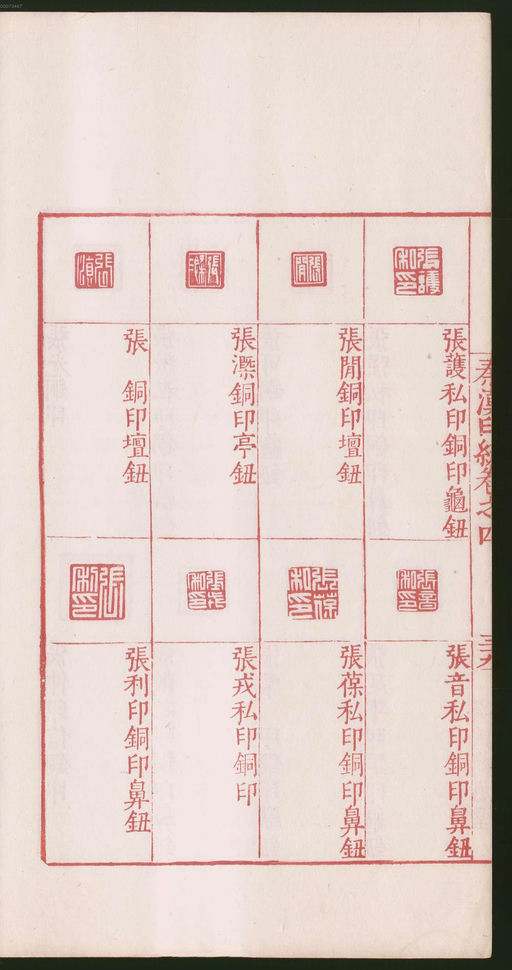 張護私印銅印龜鈕
張閒銅印壇鈕
張濼銅印亭鈕
張　銅印壇鈕
張音私印銅印鼻鈕
張葆私印銅印鼻鈕
張戎私印銅印
張利印銅印鼻鈕
00073447